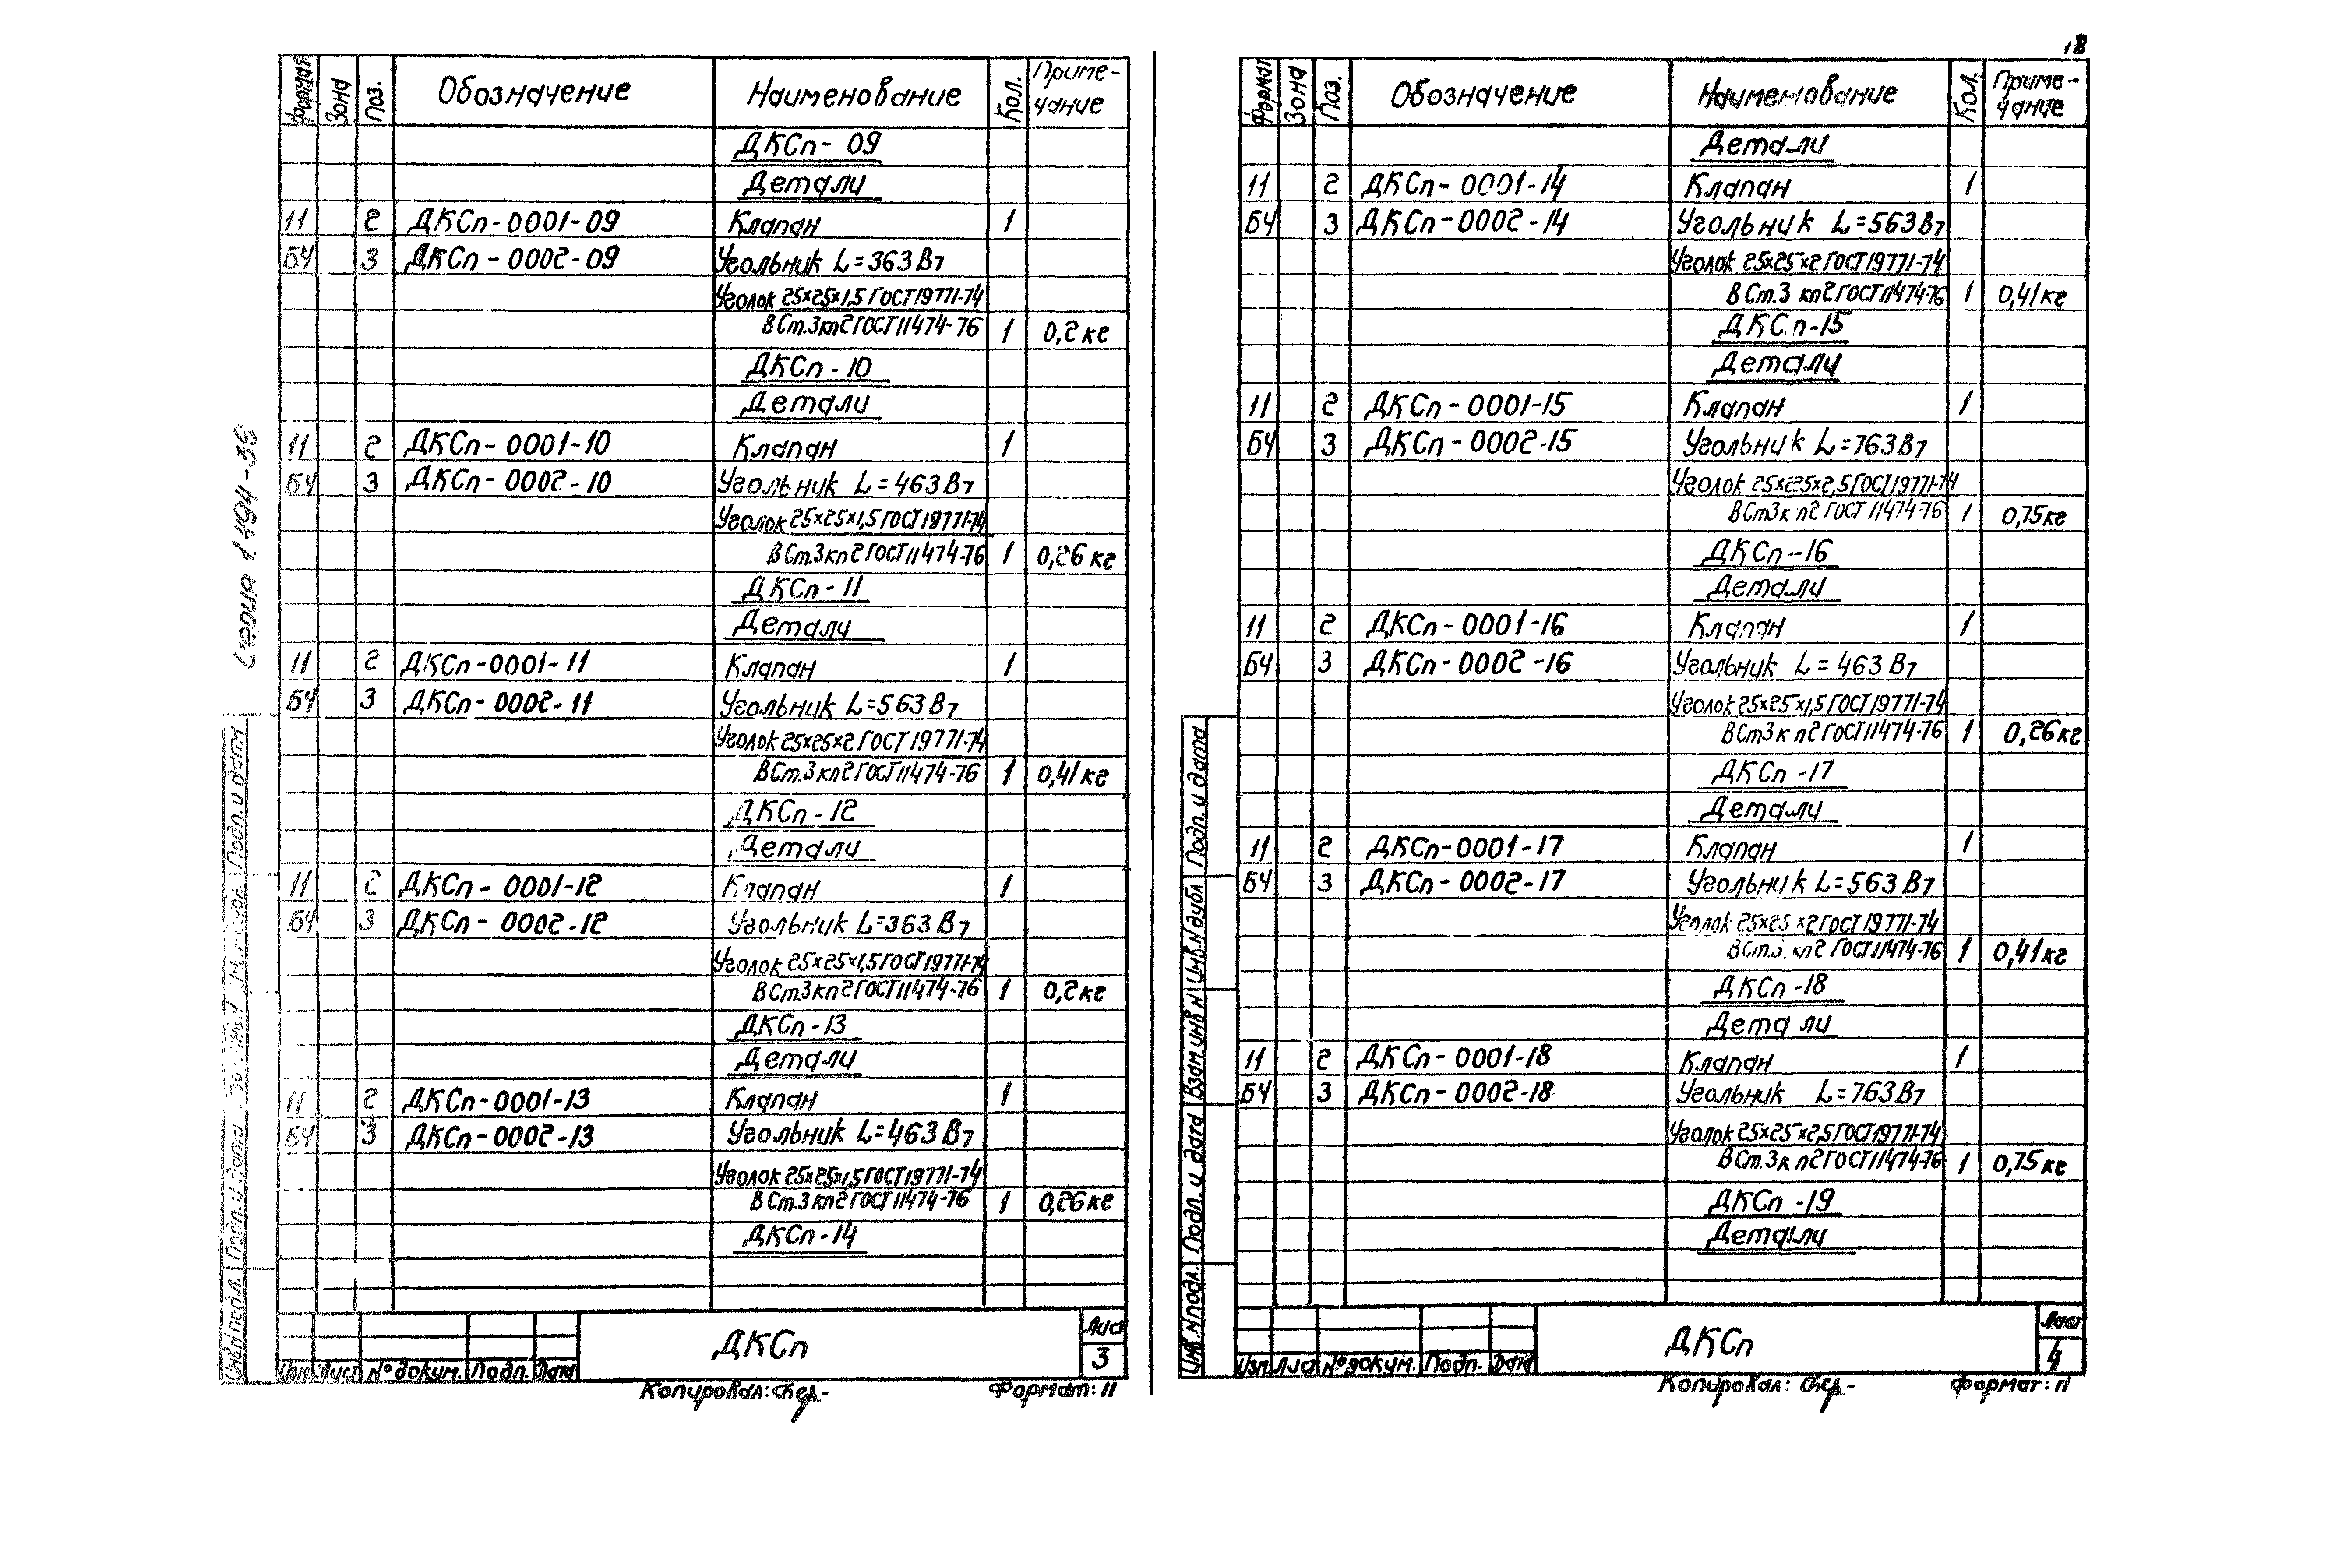 18
Формат Зона Поз. Обозначение Наименование Кол. Приме-
чание
ДКСп-09
Детали
11 2 ДКСп-0001-09 Клапан 1
БЧ 3 ДКСп-0002-09 Угольник L=363В7
Уголок 25х25х1,5 ГОСТ19771-74
ВСт.3кп2 ГОСТ11474-76 1 0,2кг
ДКСп-10
Детали
11 2 ДКСп-0001-10 Клапан 1
БЧ 3 ДКСп-0002-10 Угольник L=463В7
Уголок 25х25х1,5 ГОСТ19771-74
ВСт.3кп2 ГОСТ11474-76 1 0,26кг
ДКСп-11
Детали
11 2 ДКСп-0001-11 Клапан 1
БЧ 3 ДКСп-0002-11 Угольник L=563В7
Уголок 25х25х2 ГОСТ19771-74
ВСт.3кп2 ГОСТ11474-76 1 0,41кг
ДКСп-12
Детали
11 2 ДКСп-0001-12 Клапан 1
БЧ 3 ДКСп-0002-12 Угольник L=363В7
Уголок 25х25х1,5 ГОСТ19771-74
ВСт.3кп2 ГОСТ11474-76 1 0,2кг
ДКСп-13
Детали
11 2 ДКСп-0001-13 Клапан 1
БЧ 3 ДКСп-0002-13 Угольник L=463В7
Уголок 25х25х1,5 ГОСТ19771-74
ВСт.3кп2 ГОСТ11474-76 1 0,26кг
ДКСп-14
Изм. Лист № докум. Подп. Дата
ДКСп
Лист
3
Копировал:
Формат: 11
Серия 1.494-35
Подп. и дата
Подп. и дата
Инв.№подл.
Формат Зона Поз. Обозначение Наименование Кол. Приме-
чание
Детали
11 2 ДКСп-0001-14 Клапан 1
БЧ 3 ДКСп-0002-14 Угольник L=563В7
Уголок 25х25х2 ГОСТ19771-74
ВСт.3 кп2 ГОСТ11474-76 1 0,41кг
ДКСп-15
Детали
11 2 ДКСп-0001-15 Клапан 1
БЧ 3 ДКСп-0002-15 Угольник L=763В7
Уголок 25х25х2,5 ГОСТ19771-74
ВСт3кп2 ГОСТ11474-76 1 0,75кг
ДКСп-16
Детали
11 2 ДКСп-0001-16 Клапан 1
БЧ 3 ДКСп-0002-16 Угольник L=463В7
Уголок 25х25х1,5 ГОСТ19771-74
ВСт3кп2 ГОСТ11474-76 1 0,26кг
ДКСп-17
Детали
11 2 ДКСп-0001-17 Клапан 1
БЧ 3 ДКСп-0002-17 Угольник L=563В7
Уголок 25х25х2 ГОСТ19771-74
ВСт.3кп2 ГОСТ11474-76 1 0,41кг
ДКСп-18
Детали
11 2 ДКСп-0001-18 Клапан 1
БЧ 3 ДКСп-0002-18 Угольник L=763В7
Уголок 25х25х2,5 ГОСТ19771-74
ВСт.3кп2 ГОСТ11474-76 1 0,75кг
ДКСп-19
Детали
Изм. Лист № докум. Подп. Дата
ДКСп
Лист
4
Копировал:
Формат: 11
Подп. и дата
Инв.№дубл
Взам.инв.№
Подп. и дата
Инв.№подл.